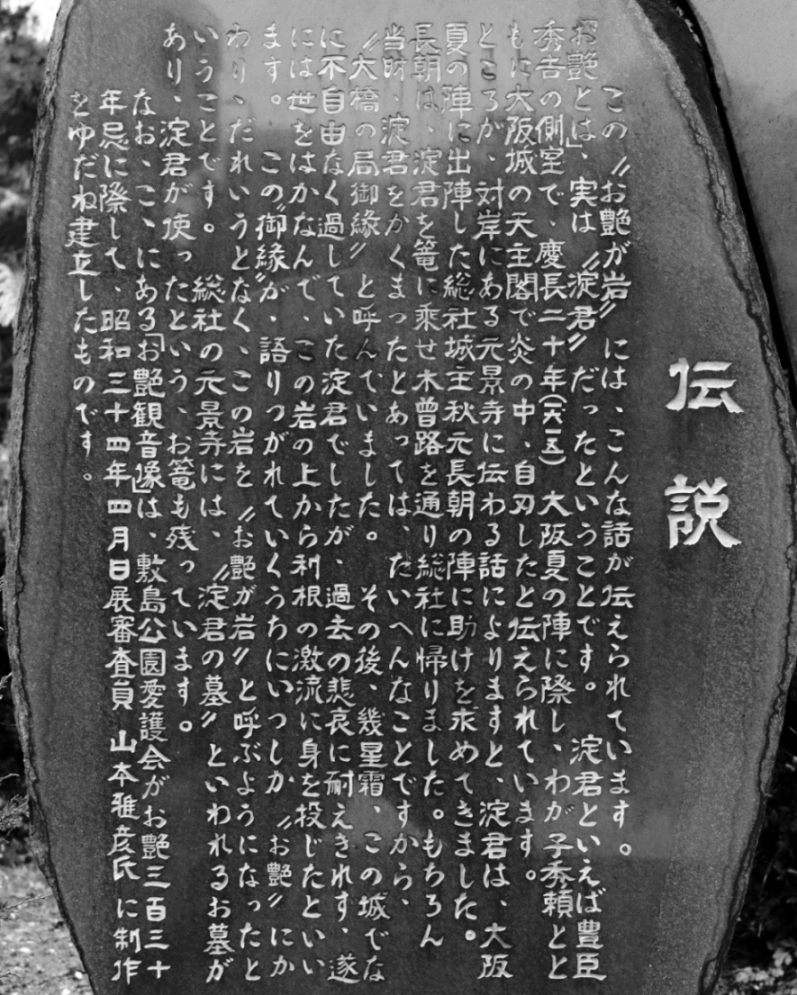 伝説
この〝お艶が岩〟には、こんな話が伝えられています。
「お艶とは」、実は〝淀君〟だったということです。 淀君といえば豊臣
秀吉の側室で、慶長二十年(一六一五) 大阪夏の陣に際し、わが子秀頼とと
もに大阪城の天主閣で炎の中、自刃したと伝えられています。
ところが、対岸にある元景寺に伝わる話によりますと、淀君は、大阪
夏の陣に出陣した総社城主秋元長朝の陣に助けを求めてきました。
長朝は、淀君を篭に乗せ木曽路を通り総社に帰りました。もちろん
当時、淀君をかくまったとあっては、たいへんなことですから、
〝大橋の局御縁〟と呼んでいました。 その後、幾星霜、この城でな
に不自由なく過していた淀君でしたが、過去の悲哀に耐えきれず、遂
には世をはかなんで、この岩の上から利根の激流に身を投じたといい
ます。 この〝御縁〟が、語りつがれていくうちにいつしか〝お艶〟にか
わり、だれいうとなく、この岩を〝お艶が岩〟と呼ぶようになったと
いうことです。 総社の元景寺には、〝淀君の墓〟といわれるお墓が
あり、淀君が使ったという、お篭も残っています。
なお、こゝにある「お艶観音像」は、敷島公園愛護会がお艶三百三十
年忌に際して、昭和三十四年四月日展審査員 山本雅彦氏 に制作
をゆだね建立したものです。